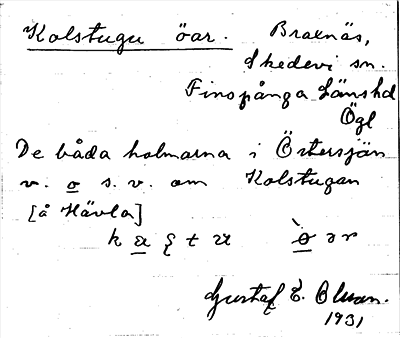 Kolstugu öar. Braxnäs,
Skedevi sn.
Finspånga Länshd
Ögl
De båda holmarna i Örtersjön
v. o s. v. om Kolstugan
[å Hävla]
Gustaf E. Olsson.
1931